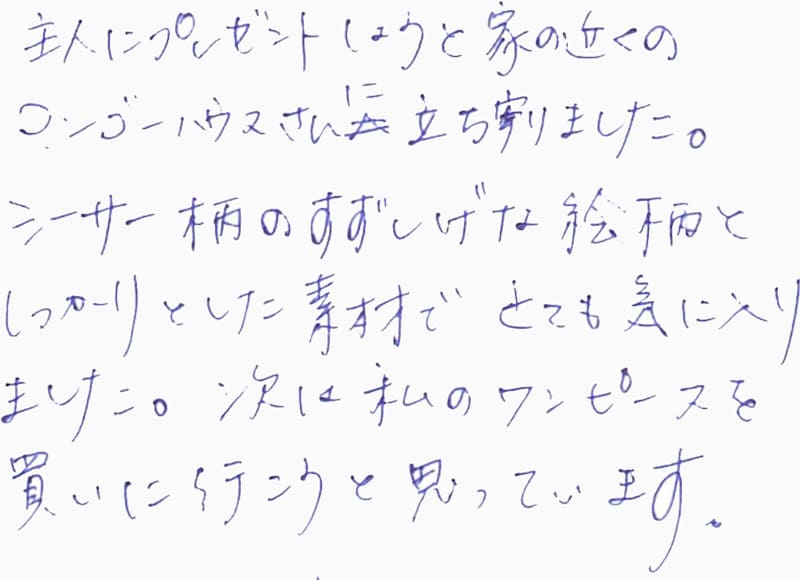 主人にプレゼントしようと家の近くの
コンゴーハウスさんに立ち割りました。
シーサー柄のすずしげな絵柄と
しっかりとした素材でとても気に入り
ました。次は私のワンピースを
買いに行こうと思っています。